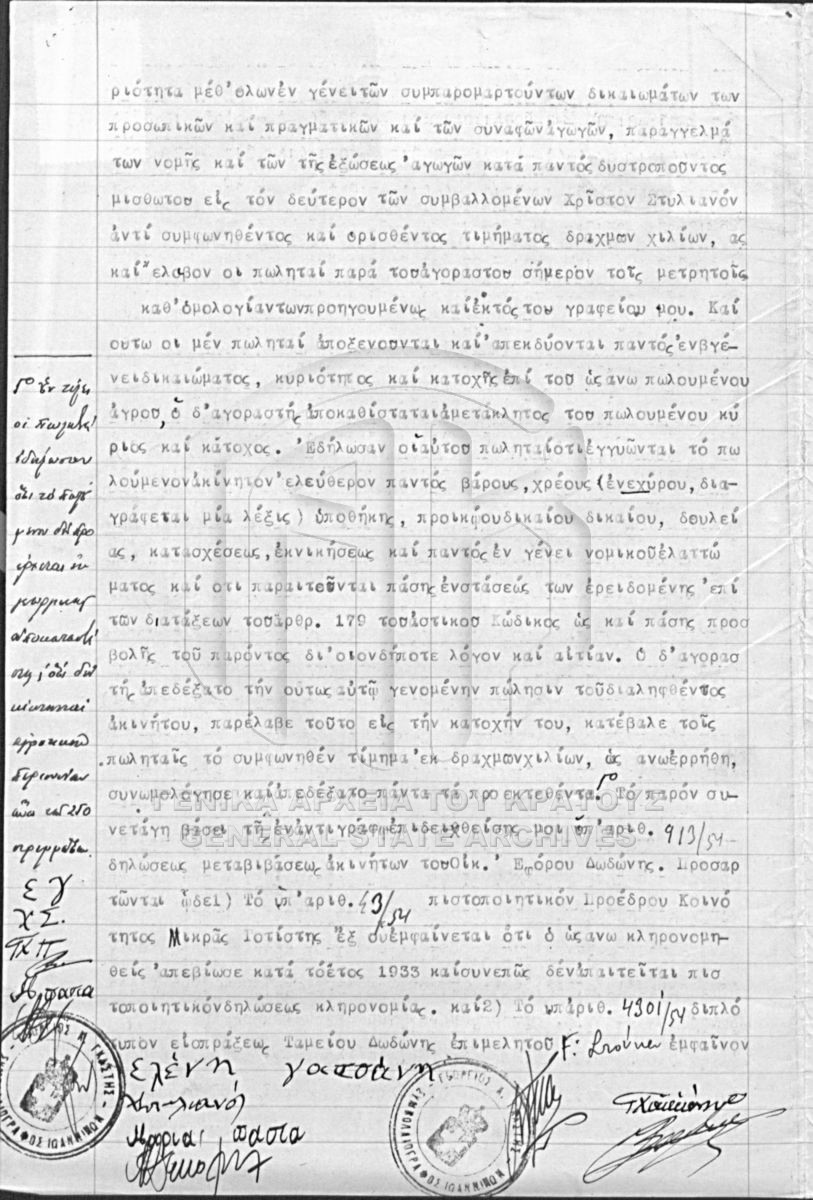 ριότητα μέθ'ὁλωνἐν γένειτῶν συμπαρομαρτούντων δικαιωμάτων των
προσωπικῶν καί πραγματικῶν καί τῶν συναφῶνἀγωγῶν, παραγγελμά
των νομῆς καί τῶν τῆςἐξώσεως 'αγωγῶν κατά παντός δυστροποῦντος
μισθωτου εἰς τόν δεύτερον τῶν συμβαλλομένων Χρῖστον Στυλιανόν
ἀντί συμφωνηθέντος καί ορισθέντος τιμήματος δραχμων χιλίων, ας
καί ἔλαβον οι πωληταί παρά τουἀγοραστου σήμερον τοῖς μετρητοῖς
καθ'ὁμολογίαντωνπροηγουμένως καίἐκτός του γραφείου μου. Καί
ουτω οι μέν πωληταί ἀποξενουνται καί ἀπεκδύονται παντός ἐνβγέ-
νειδικαιώματος, κυριότητος καί κατοχῆς ἐπί του ὡς ανω πωλουμένου
ἀγρου, ὁ δ'αγοραστής ἀποκαθίσταταιἀμετάκλητος του πωλουμένου κύ
ριος καί κάτοχος. Ἐδήλωσαν οἱ αὐτου πωληταίοτιἐγγυῶνται τό πω
λούμενονἀκίνητον ἐλεύθερον παντός βάρους, χρέους (ἐνεχύρου, δια-
γράφεται μία λέξις) ὑποθήκης, προικῴουδικαίου δικαίου, δουλεί
ας, κατασχέσεως, ἐκνικήσεως καί παντός ἐν γένει νομικοῦἐλαττώ
ματος καί οτι παραιτοῦνται πάσης ἐνστάσεώς των ἐρειδομένης 'επί
τῶν διατάξεων τουἄρθρ. 179 τουἀστικου Κώδικος ὡς καί πάσης προσ
βολῆς τοῦ παρόντος δι'οιονδήποτε λόγον καί αἰτίαν. Ὁ δ'αγορασ
τής ἀπεδέξατο τήν ουτως αὐτῷ γενομένην πώλησιν τοῦδιαληφθέντος
ἀκινήτου, παρέλαβε τοῦτο εἰς τήν κατοχήν του, κατέβαλε τοῖς
πωληταῖς τό συμφωνηθέν τίμημα ἐκ δραχμωνχιλίων, ὡς ανωἐρρήθη,
συνωμολόγησε καί ἀπεδέξατο πάντα τά προεκτεθέντα. Τό παρόν συ-
νετάγη βάσει τῆ ἐνἀντιγράφῳἐπιδειχθείσης μοι ὑπ'αριθ. 913/54
δηλώσεως μεταβιβάσεως ἀκινήτων τουΟἰκ. Ἐφόρου Δωδώνης. Προσαρ
τῶνται ὧδε1) Τό ὑπ'αριθ. 43/54 πιστοποιητικόν Προέδρου Κοινό
τητος Μικρᾶς Ιοτίστης ἐξ οὗἐμφαίνεται οτι ὁ ὡς ανω κληρονομη-
θείς ἀπεβίωσε κατά τόἔτος 1933 καίσυνεπῶς δένἀπαιτεῖται πισ
τοποιητικόνδηλώσεως κληρονομία. καί2) Τό ὑπάριθ. 4301/54 διπλό
τυπον εἰσπράξεως Ταμείου Δωδώνης ἐπιμελητοῦ ἐμφαῖνον
ἐν τέλει
οἱ πωληταί
ἐδήλωσαν
ὅτι τό πωλού
Ε Γ
Χ Σ.
Μ παπα
ΓΕΝΙΚΑ ΑΡΧΕΙΑ ΤΟΥ ΚΡΑΤΟΥΣ
GENERAL STATE ARCHIVES
Ελένη γαπσάνη
Μαρια παπα